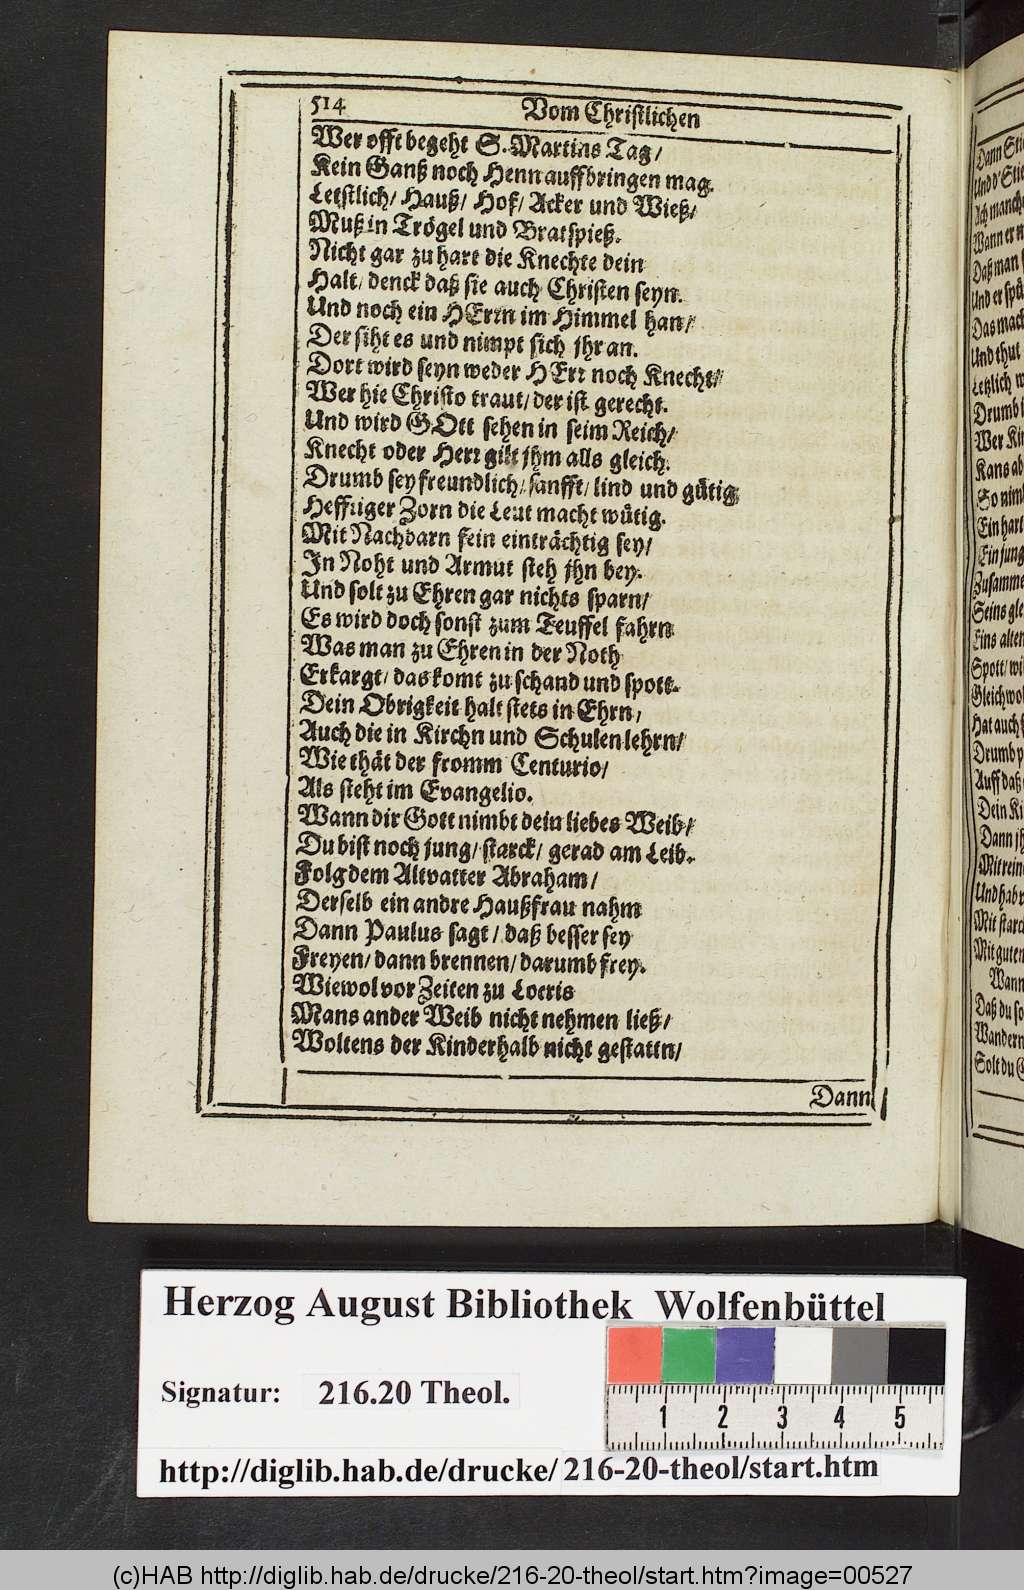 514 Vom Christlichen
Wer offt begeht S. Martins Tag/
Kein Ganß noch Henn auffbringen mag.
Letstlich/ Hauß/ Hof/ Acker und Wieß/
Muß in Trögel und Bratspieß.
Nicht gar zu hart die Knechte dein
Halt/ denck daß sie auch Christen seyn.
Und noch ein HErrn im Himmel han/
Der siht es und nimpt sich jhr an.
Dort wird seyn weder HErr noch Knecht/
Wer hie Christo traut/ der ist gerecht.
Und wird GOtt sehen in seim Reich/
Knecht oder Herr gilt jhm alls gleich.
Drumb sey freundlich/ sanfft/ lind und gütig
Hefftiger Zorn die Leut macht wütig.
Mit Nachbarn fein einträchtig sey/
In Noht und Armut steh jhn bey.
Und solt zu Ehren gar nichts sparn/
Es wird doch sonst zum Teuffel fahrn
Was man zu Ehren in der Noth
Erkargt/ das komt zu schand und spott.
Dein Obrigkeit halt stets in Ehrn/
Auch die in Kirchn und Schulen lehrn/
Wie thät der fromm Centurio/
Als steht im Evangelio.
Wann dir Gott nimbt dein liebes Weib/
Du bist noch jung/ starck/ gerad am Leib.
Folg dem Altvatter Abraham/
Derselb ein andre Haußfrau nahm
Dann Paulus sagt/ daß besser sey
Freyen/ dann brennen/ darumb frey.
Wiewol vor Zeiten zu Locris
Mans ander Weib nicht nehmen ließ/
Woltens der Kinderhalb nicht gestattn/
Dann
Dann
Und d'
Ach manch
Wann er
Daß man
Und er
Das mach
Und thut
Letzlich
Drumb
Wer
Kans ab
So nimb
Ein hart
Ein jung
Zusamme
Seins gle
Eins alten
Spott/
Gleichwol
Hat auch
Drumb
Auff daß
Dein
Dann
Mit rein
Und hab
Mit starck
Mit guten
Wann
Daß du so
Wandern
Solt du
Herzog August Bibliothek Wolfenbüttel
Signatur: 216.20 Theol.
1 2 3 4 5
http://diglib.hab.de/drucke/216-20-theol/start.htm
(c)HAB http://diglib.hab.de/drucke/216-20-theol/start.htm?image=00527